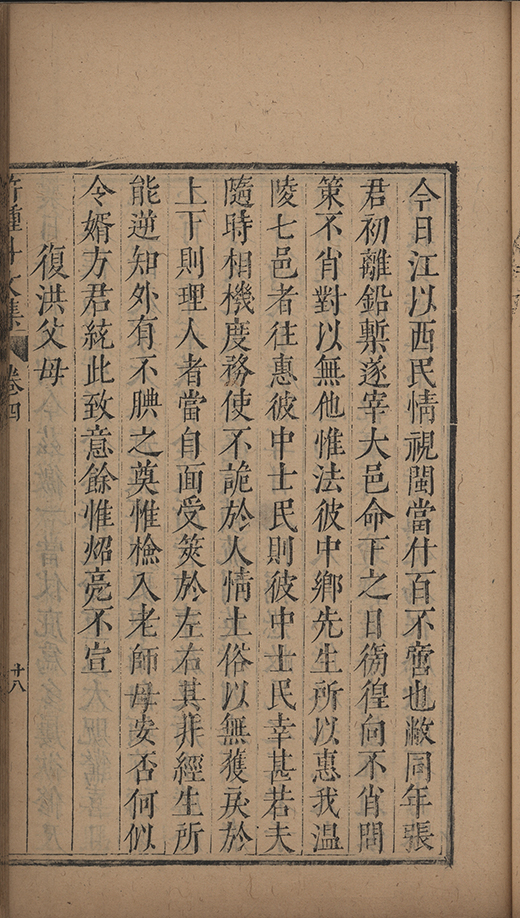 今日江以西民情視閩當什百不啻也敝同年張
君初離鉛槧遂宰大邑命下之日徬徨向不肖問
策不肖對以無他惟法彼中鄉先生所以惠我温
陵七邑者往惠彼中士民則彼中士民幸甚若夫
隨時相機度務使不詭於人情土俗以無獲戾於
上下則理人者當自面受筴於左右其非經生所
能逆知外有不腆之奠惟檢入老師母安否何似
令婿方君統此致意餘惟炤亮不宣
復洪父母
卷四
十八